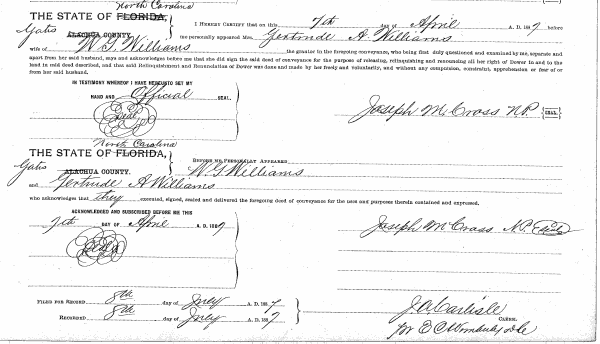 North Carolina
THE STATE OF FLORIDA,
Gates
ALACHUA COUNTY.
I HEREBY CERTIFY that on this 7th day of April A. D. 1887 before
me personally appeared Mrs. Gertrude A. Williams
wife of W. G. Williams the grantor in the foregoing conveyance, who being first duly questioned and examined by me, separate and
apart from her said husband, says and acknowledges before me that she did sign the said deed of conveyance for the purpose of releasing, relinquishing and renouncing all her right of Dower in and to the
land in said deed described, and that said Relinquishment and Renunciation of Dower was done and made by her freely and voluntarily, and without any compulsion, constraint, apprehension or fear of or
from her said husband.
IN TESTIMONY WHEREOF I HAVE HEREUNTO SET MY
HAND AND Official SEAL.
Seal
Joseph M. Cross N.P. SEAL
North Carolina
THE STATE OF FLORIDA,
Gates
ALACHUA COUNTY.
BEFORE ME PERSONALLY APPEARED
W G Williams
and Gertrude A Williams
who acknowledges that they executed, signed, sealed and delivered the foregoing deed of conveyance for the uses and purposes therein contained and expressed.
ACKNOWLEDGED AND SUBSCRIBED BEFORE ME THIS
7th DAY OF April A. D. 1887
Seal
Joseph M Cross N.P. Seal
FILED FOR RECORD 8th day of July A. D. 1887
RECORDED 8th day of July A. D. 1887
J. A. Carlisle
CLERK.
for E C